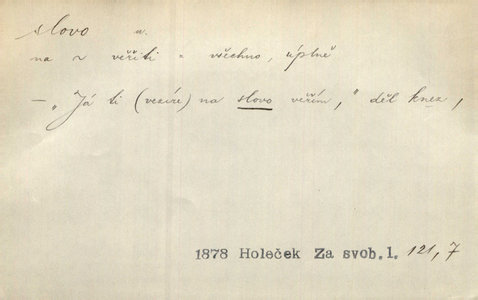 slovo n.
na ~ věřiti = všechno, úplně
– „Já ti (vezíre) na slovo věřím," děl knez,
1878 Holeček Za svob. l. 121, 7